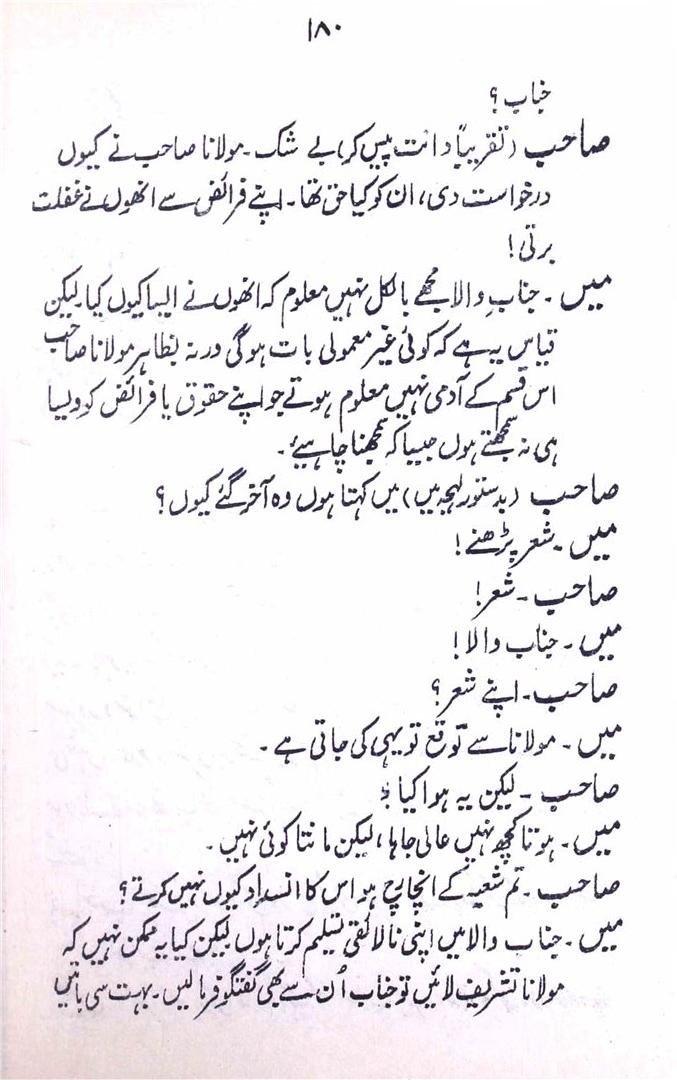 ۱۸۰
جناب ؟
صاحب (تقریباً دانت پیس کر) بے شک ۔ مولانا صاحب نے کیوں
درخواست دی، ان کو کیا حق تھا ۔ اپنے فرائض سے انھوں نے غفلت
برتی!
میں ۔ جناب والا مجھے بالکل نہیں معلوم کہ انھوں نے ایسا کیوں کیا۔ لیکن
قیاس یہ ہے کہ کوئی غیر معمولی بات ہوگی ورنہ بظاہر مولانا صاحب
اس قسم کے آدمی نہیں معلوم ہوتے جو اپنے حقوق یا فرائض کو ویسا
ہی نہ سمجھتے ہوں جیسا کہ سمجھنا چاہیئے ۔
صاحب (بدستور لہجہ میں) میں کہتا ہوں وہ آخر گئے کیوں ؟
میں ۔ شعر پڑھنے !
صاحب ۔ شعر !
میں ۔ جناب والا !
صاحب ۔ اپنے شعر ؟
میں ۔ مولانا سے توقع تو یہی کی جاتی ہے ۔
صاحب ۔ لیکن یہ ہوا کیا ؟
میں ۔ ہوتا کچھ نہیں عالی جاہا ، لیکن مانتا کوئی نہیں ۔
صاحب ۔ تم شعبہ کے انچارج ہو اس کا انسداد کیوں نہیں کرتے ؟
میں ۔ جناب والا میں اپنی نالائقی تسلیم کرتا ہوں لیکن کیا یہ ممکن نہیں کہ
مولانا تشریف لائیں تو جناب اُن سے بھی گفتگو فرمالیں ۔ بہت سی باتیں